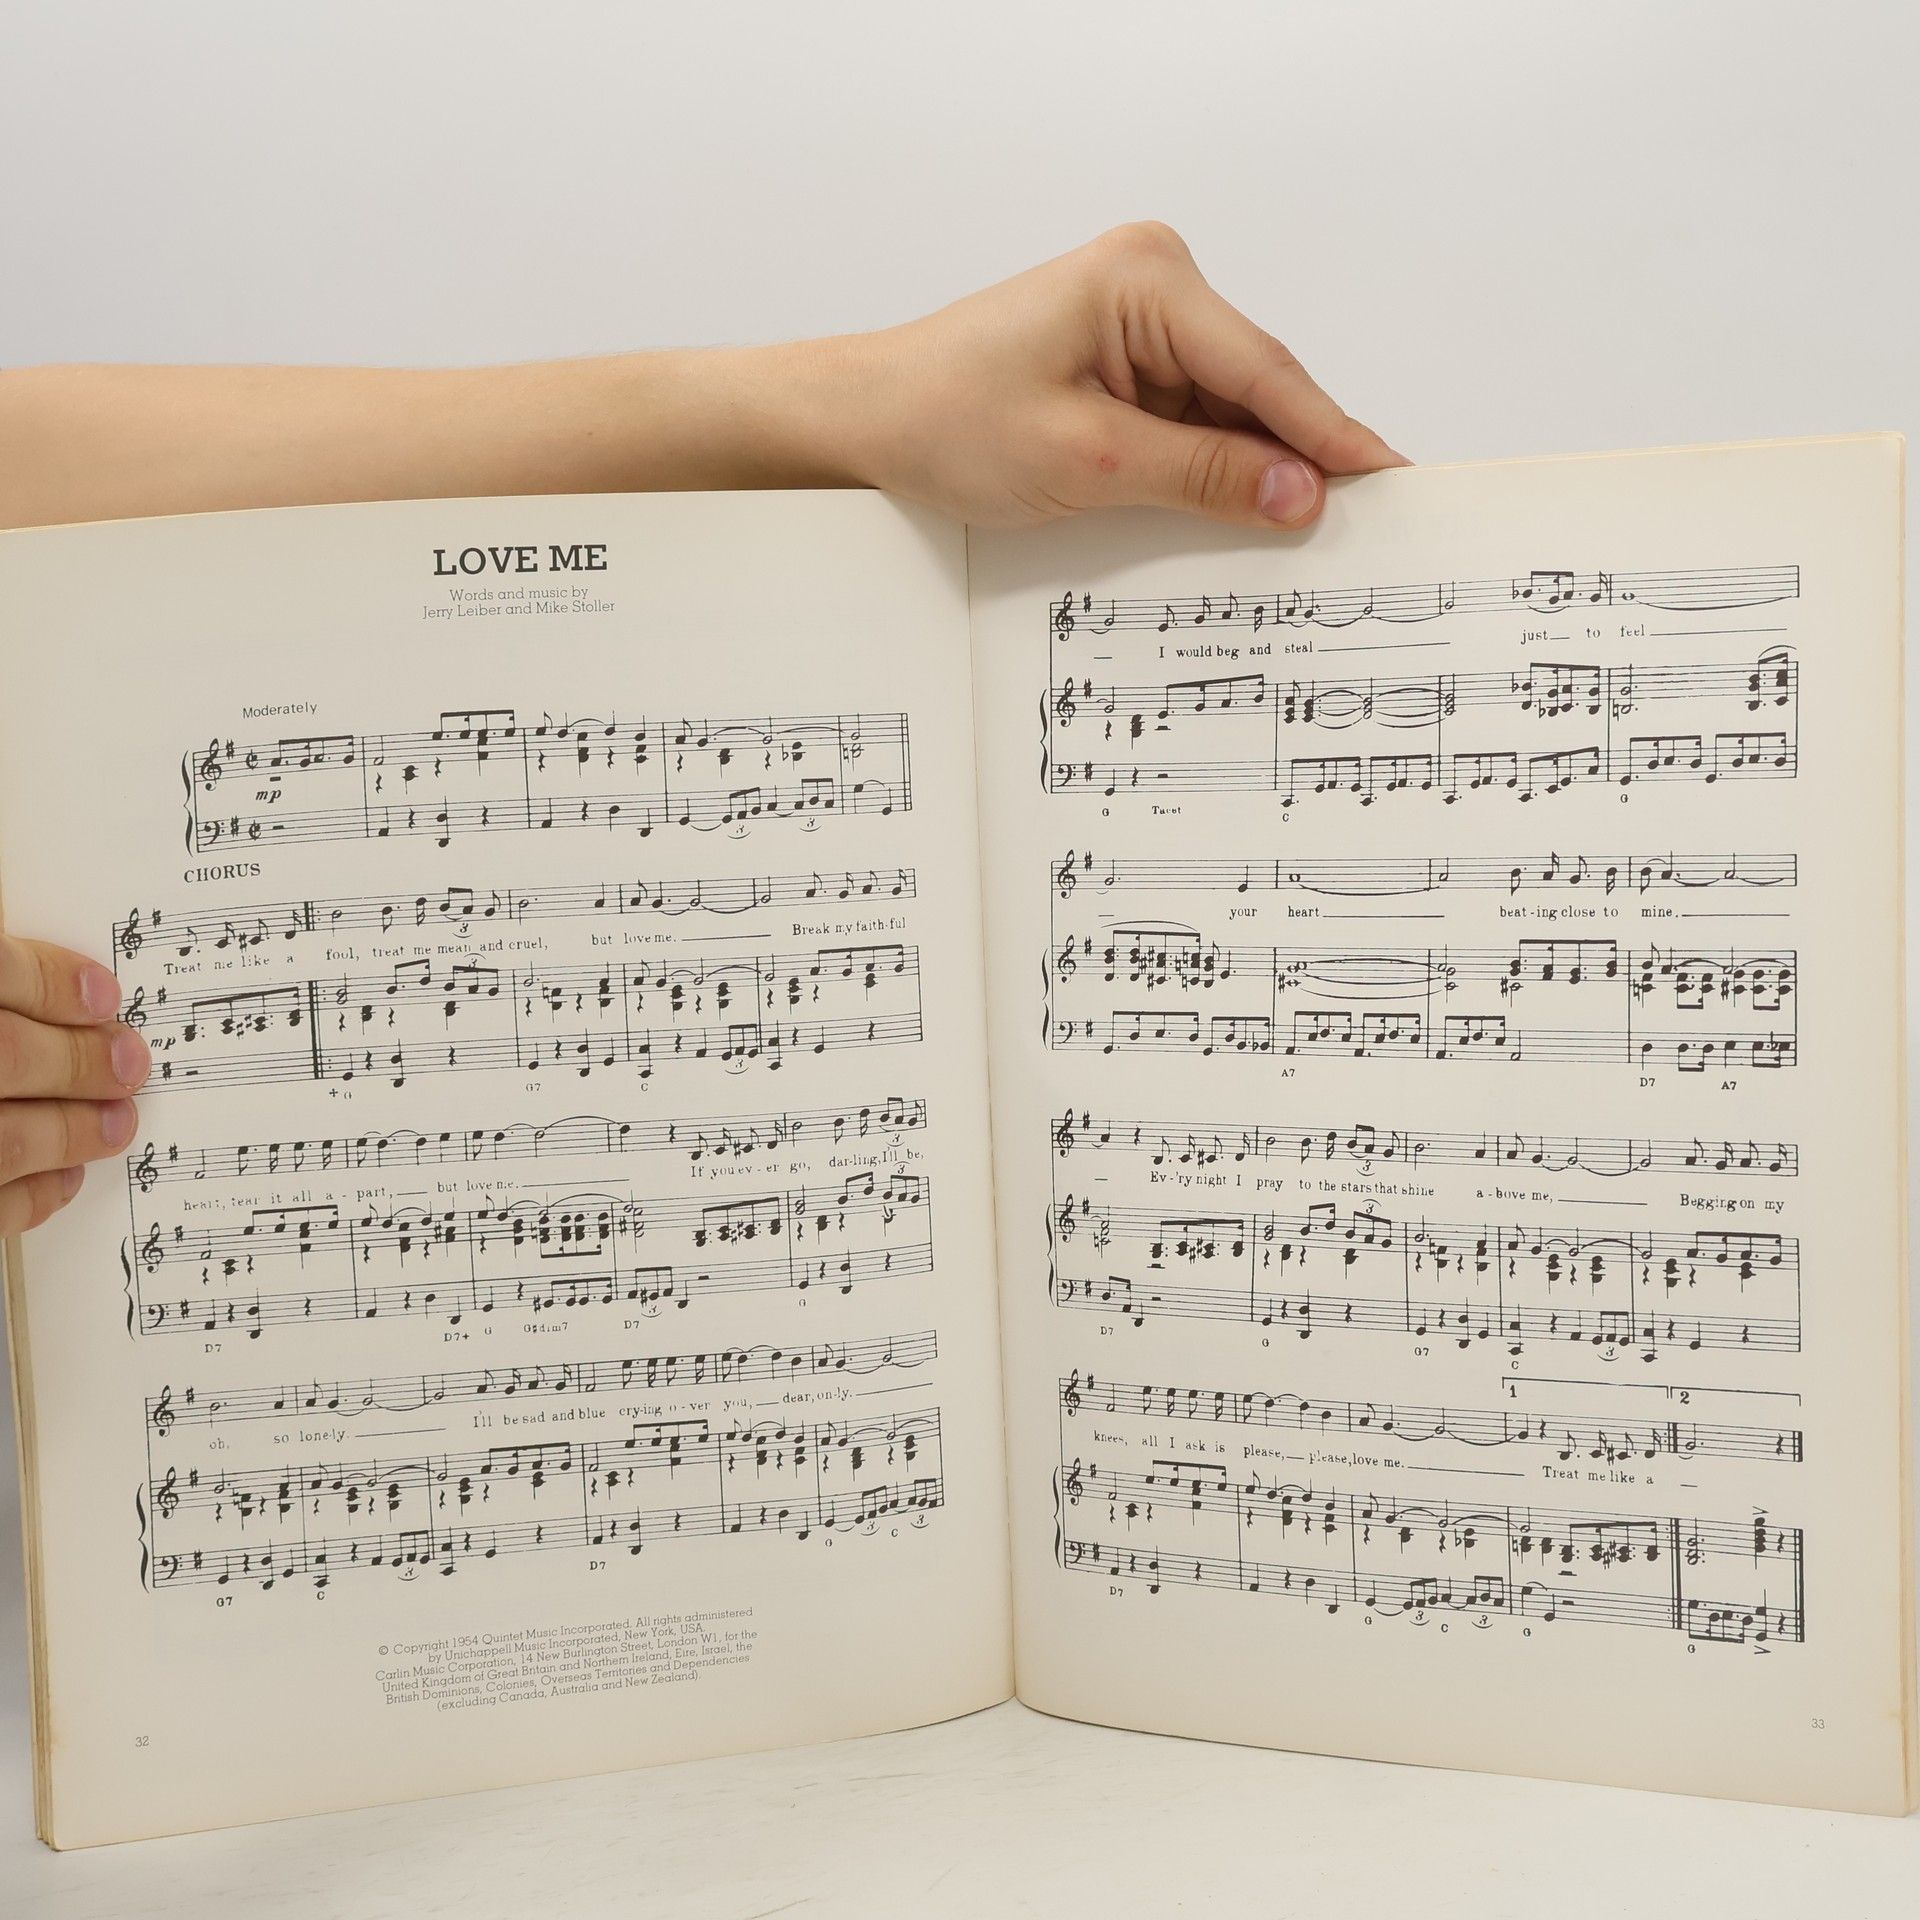 LOVE ME
Words and music by
Jerry Leiber and Mike Stoller
Moderately
mp
CHORUS
Treat me like a fool, treat me mean and cruel, but love me. Break my faith-ful
3
3
mp
3
+ G G7 C
heart, tear it all a - part, but love me. If you ev - er go, dar-ling, I'll be,
3
3
3
D7 D7+ G G#dim7 D7 G
oh, so lone-ly. I'll be sad and blue cry-ing o - ver you, dear, on-ly.
3 3 3
G7 C D7 G C
© Copyright 1954 Quintet Music Incorporated. All rights administered
by Unichappell Music Incorporated, New York, USA.
Carlin Music Corporation, 14 New Burlington Street, London W1, for the
United Kingdom of Great Britain and Northern Ireland, Eire, Israel, the
British Dominions, Colonies, Overseas Territories and Dependencies
(excluding Canada, Australia and New Zealand).
32
I would beg and steal just to feel
G Tacet C G
your heart beat-ing close to mine.
A7 D7 A7
3
Ev-'ry night I pray to the stars that shine a-bove me, Begging on my
3
3
D7 G G7 C
1 2
knees, all I ask is please, please, love me. Treat me like a
3 3
D7 G C G G
33